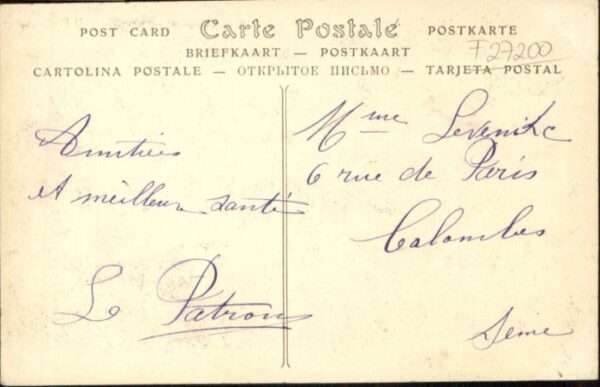 POST CARD Carte Postale POSTKARTE
BRIEFKAART — POSTKAART
F27200
CARTOLINA POSTALE — ОТКРЫТОЕ ПИСЬМО — TARJETA POSTAL
Amitiés
et meilleure santé
Le Patron
Mme
6 rue de Paris
Colombes
Seine